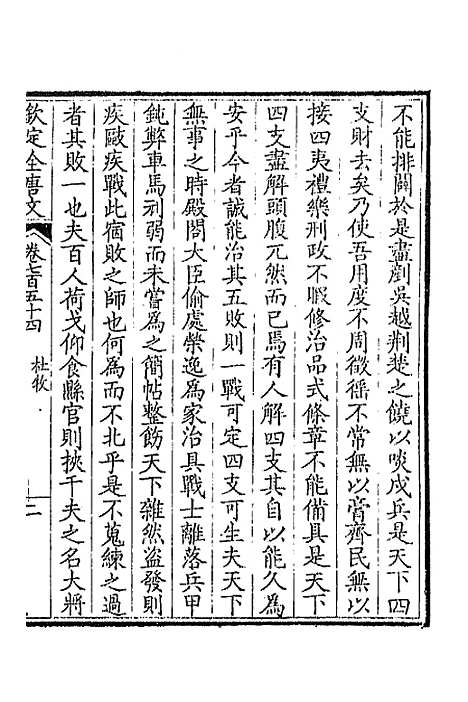 不能排闢於是盡剷吳越荆楚之饒以啖戍兵是天下四
支財去矣乃使吾用度不周徵徭不常無以膏齊民無以
接四夷禮樂刑政不暇修治品式條章不能備具是天下
四支盡解頭腹兀然而已焉有人解四支其自以能久為
安乎今者誠能治其五敗則一戰可定四支可生夫天下
無事之時殿閣大臣偷處榮逸為家治具戰士離落兵甲
鈍弊車馬刓弱而未嘗為之簡帖整飭天下雜然盜發則
疾敺疾戰此宿敗之師也何為而不北乎是不蒐練之過
者其敗一也夫百人荷戈仰食縣官則挾千夫之名大將
欽定全唐文 卷七百五十四 杜牧 二